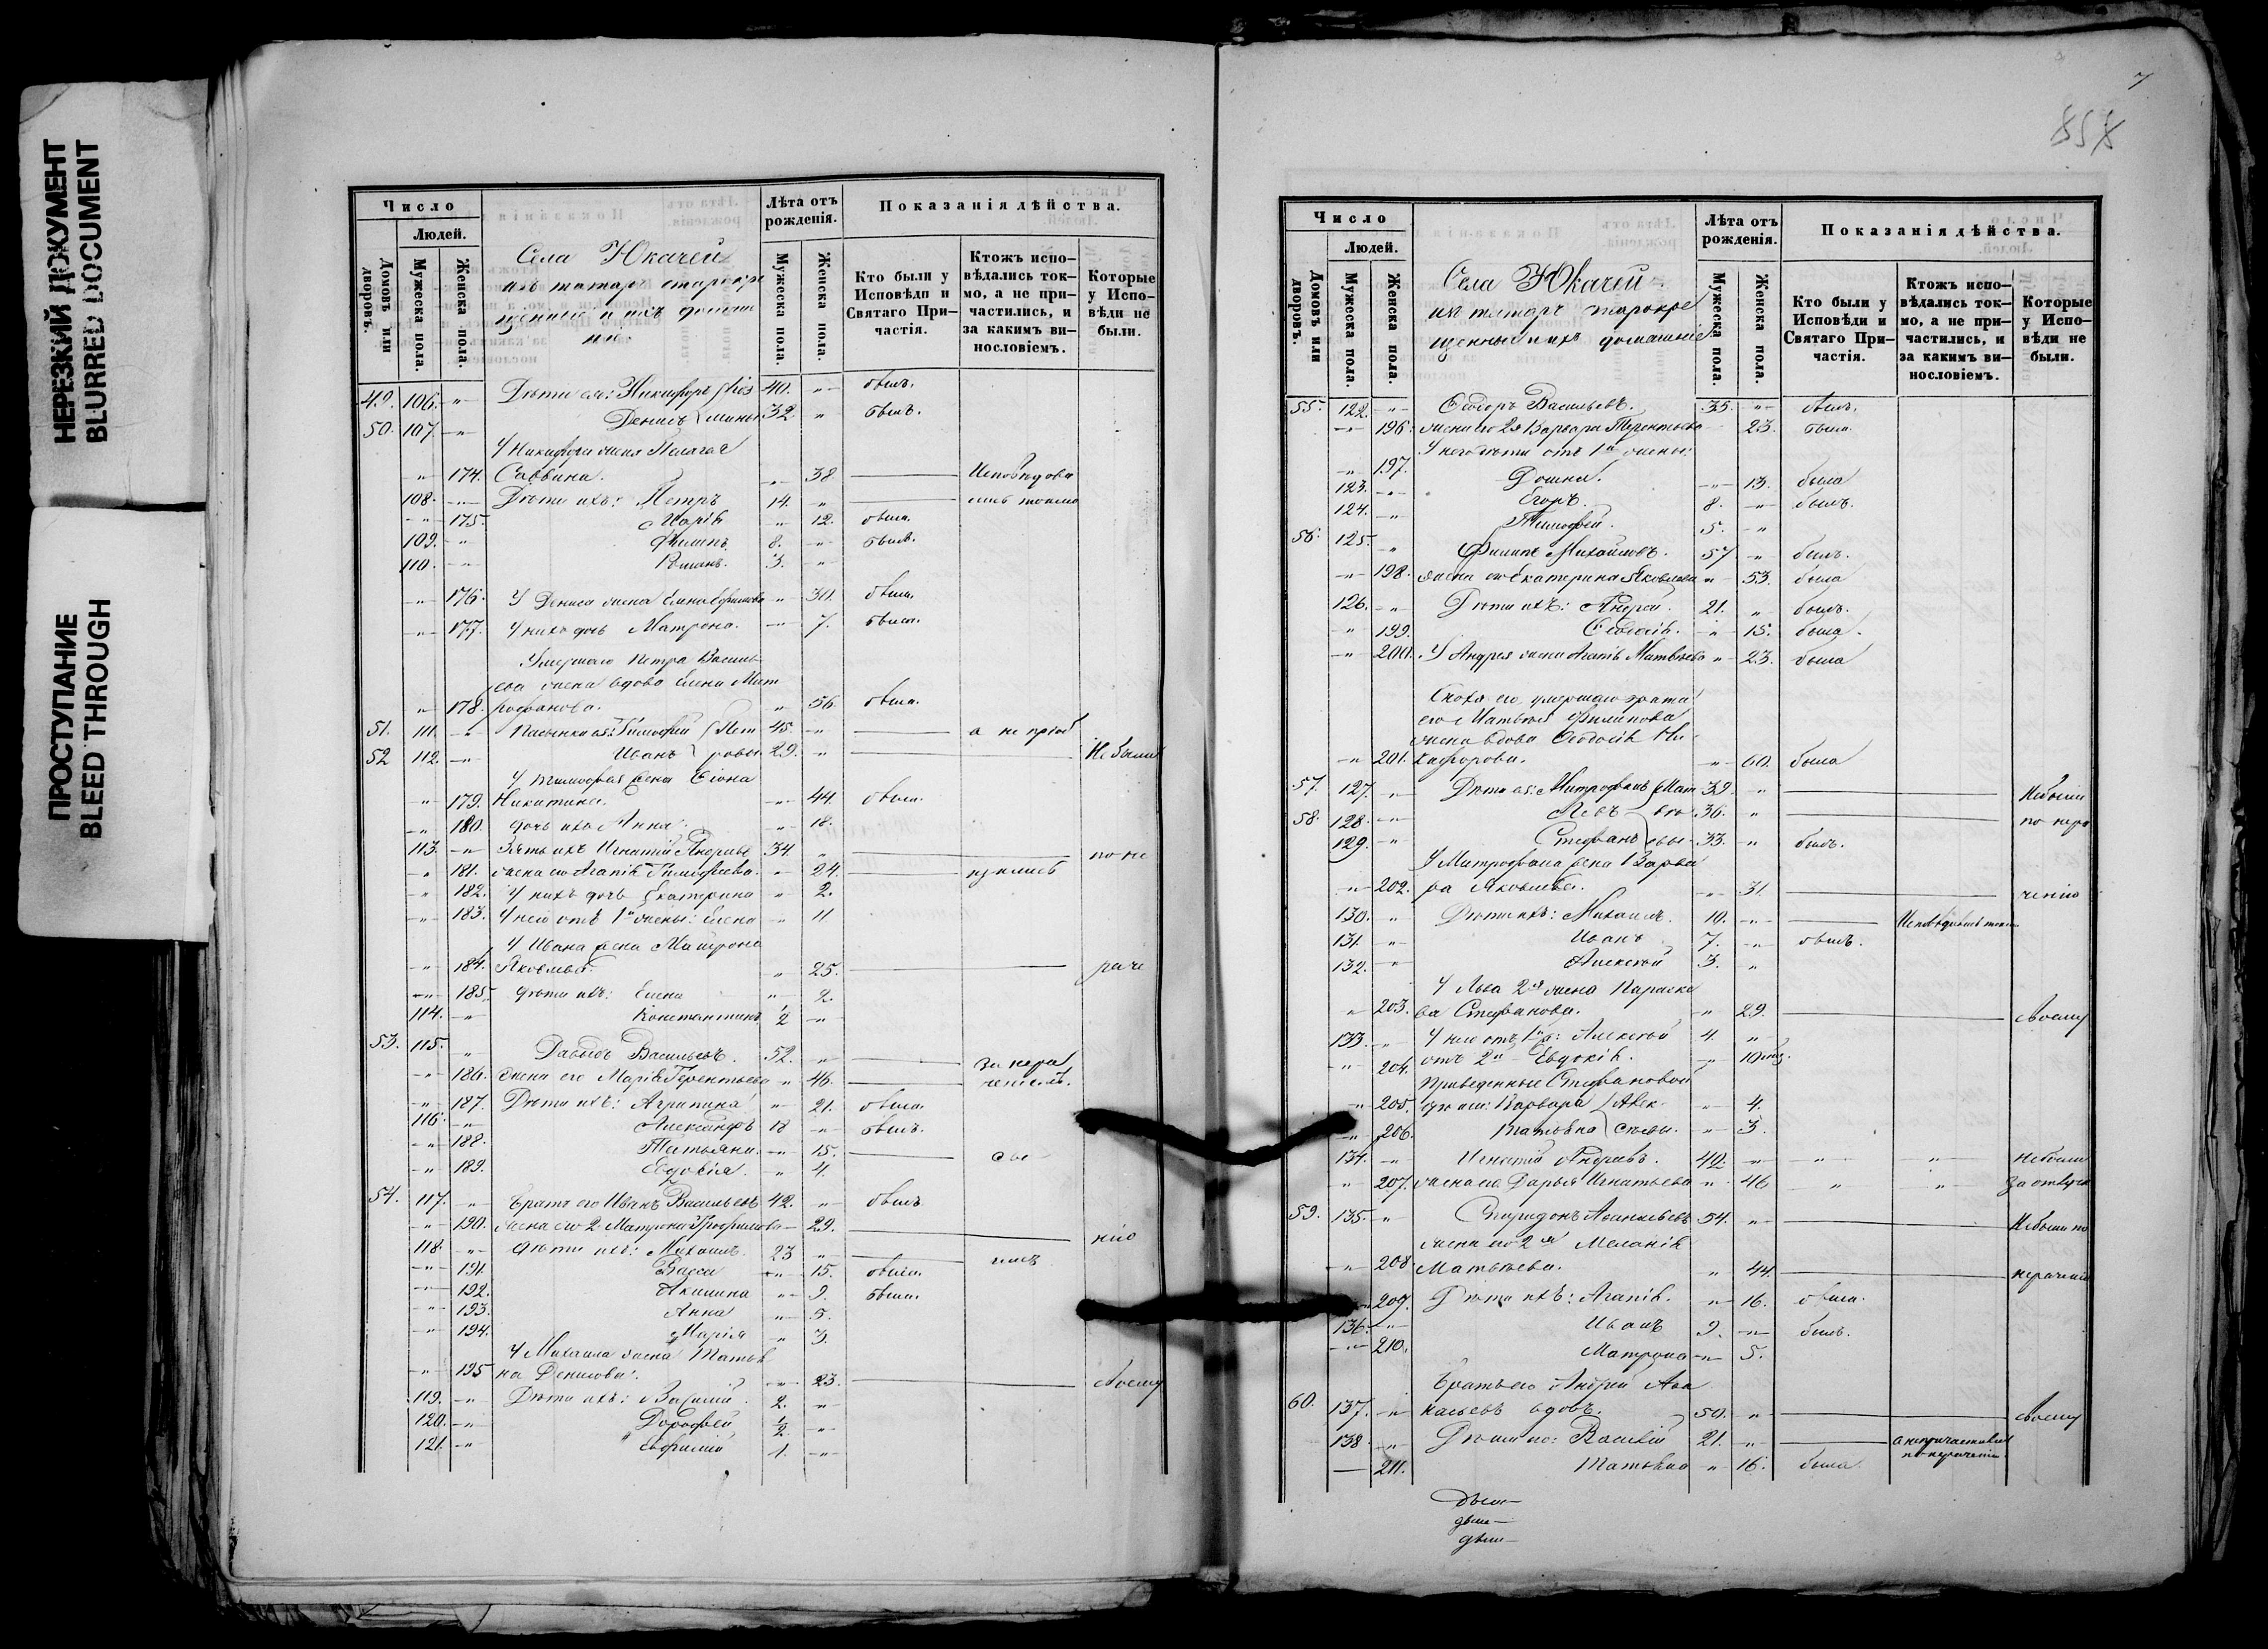 НЕРЕЗКИЙ ДОКУМЕНТ
BLURRED DOCUMENT
ПРОСТУПАНИЕ
BLEED THROUGH
Число
Людей.
Домовъ или дворовъ.
Мужеска пола.
Женска пола.
Села Юкачей
изъ татаръ старокре
щенные и ихъ домаш
ніе
Лѣта отъ рожденія.
Мужеска пола.
Женска пола.
Показанія дѣйства.
Кто были у Исповѣди и Святаго При-
частія.
Ктожъ испо-
вѣдались ток-
мо, а не при-
частились, и
за какимъ ви-
нословіемъ.
Которые
у Испо-
вѣди не
были.
49. 106. " Дѣти ея: Никифоръ 40. " былъ.
50. 107 " Денисъ 32. " былъ.
У Никифора жена Пелагея
" 174. Саввина. " 38 Исповѣдова
108. " Дѣти ихъ: Петръ 14. " лись токмо
" 175. Марія " 12. была.
109. " Филипъ 8. " былъ.
110. " Романъ. 3. "
" 176. У Дениса жена Елена Ефимова " 30. была.
" 177. У нихъ дочь Матрона. " 7. была.
Умершаго Петра Василь-
ева жена вдова Елена Мит
" 178. рофанова. " 56. была.
51. 111. " Пасынки ея: Тимофей Пет 45. " а не пріоб
52 112. " Иванъ ровы 29. " Не были
У Тимофея жена
" 179. Никитина. " 44. была.
" 180. дочь ихъ Анна. " 18.
113. " Зять ихъ Игнатій Андреевъ 34. " по не
" 181. жена его Агапія Тимофеева. " 24. щились
" 182. У нихъ дочь Екатерина " 2.
" 183. У него отъ 1й жены: Елена " 11
У Ивана жена Матрона
" 184. Яковлева. " 25. раче
" 185. Дѣти ихъ: Елена " 2.
114. " Константинъ 1/2 "
53. 115. " Давыдъ Васильевъ. 52. " за нера
" 186. жена его Марія Терентьева " 46. ченіемъ.
" 187. Дѣти ихъ: Агрипина " 21. была.
116. " Александръ 18 " былъ.
" 188. Татьяна. " 15. сво
" 189. Евдокія. " 4.
54. 117. " Братъ его Иванъ Васильевъ 42. " былъ
" 190. жена его 2я Матрона Трофимова 29. нію
118. " Дѣти ихъ: Михаилъ. 23 " имъ
" 191. Васса " 15. была.
" 192. Акилина " 9. была.
" 193. Анна " 5.
" 194. Марія " 3.
У Михаила жена Татья
" 195 на Денисова. " 23. своему
119. " Дѣти ихъ: Василій. 2. "
120. " Дорофей 1/2 "
121. " Ефимій 1. "
7
858
Число
Людей.
Домовъ или дворовъ.
Мужеска пола.
Женска пола.
Села Юкачей
изъ татаръ старокре
щенные и ихъ домашніе
Лѣта отъ рожденія.
Мужеска пола.
Женска пола.
Показанія дѣйства.
Кто были у Исповѣди и Святаго При-
частія.
Ктожъ испо-
вѣдались ток-
мо, а не при-
частились, и
за какимъ ви-
нословіемъ.
Которые
у Испо-
вѣди не
были.
55. 122. " Ѳедоръ Васильевъ. 35. " былъ.
" 196. жена его 2я Варвара Терентьева 23. была
У него дѣти отъ 1й жены:
" 197. Домна. " 13. была
123. " Егоръ. 8. " былъ.
124. " Тимофей. 5. "
56. 125. " Филипъ Михайловъ. 57 " былъ.
" 198. жена его Екатерина Яковлева " 53. была
126. " Дѣти ихъ: Андрей. 21. " былъ.
" 199. Ѳедосія. " 15. была.
" 200. У Андрея жена Агапія Матвѣева " 23. была
Сноха его умершаго брата
его Матвѣя Филипова
жена вдова Ѳеодосія Ни-
" 201. кифорова. " 60. была
57. 127. " Дѣти ея: Митрофанъ Мат 39. " Небыли
58. 128. " Левъ вѣе 36. " по нера
129. " Стефанъ вы 33. " былъ.
У Митрофана жена Варва
" 202. ра Яковлева. " 31. ченію
130. " Дѣти ихъ: Михаилъ. 10. "
131. " Иванъ 7. " былъ.
132. " Алексѣй 3. "
У Льва 2я жена Параске
" 203. ва Стефанова. " 29. своему
133. " У него отъ 1й: Алексѣй 4. "
" 204. отъ 2й Евдокія. " 10 мѣс.
приведенные Стефановой
" 205. дѣти: Варвара Алек- " 4.
" 206. Татьяна сѣевы. " 3.
134. " Игнатій Андреевъ. 49. " " " небыли
" 207. жена его Дарья Игнатьева " 46 " " за отлуч
59. 135. " Спиридонъ Аѳанасьевъ 54. " Небыли по
жена его 2я Меланія
" 208 Матвѣева. " 44. нерачені
" 209. Дѣти ихъ: Агапія. " 16. была.
136. " Иванъ 9. " былъ.
" 210. Матрона " 5.
Братъ его Андрей Аѳа
60. 137. " насьевъ вдовъ. 50. " своему
138 " Дѣти его: Василій 21. " а непричастился
по нераченію.
211. Татьяна " 16. была.